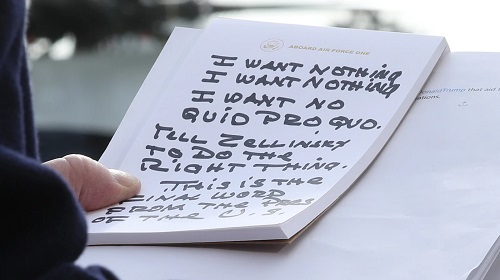 ABOARD AIR FORCE ONE
I WANT NOTHING
I WANT NOTHING
I WANT NO
QUID PRO QUO.
TELL ZELLINSKY
TO DO THE
RIGHT THING.
THIS IS THE
FINAL WORD
FROM THE PRES
OF THE U.S.
that aid